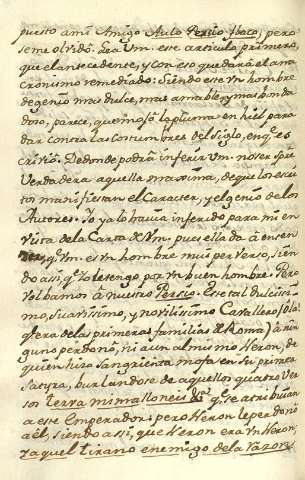 puesto a mi Amigo Aulo Persio Flaco, pero
se me olvidó. Lea Vm. este articulo primero,
que el antecedente, y con eso quedará el ana
cronismo remediado: Siendo este vn hombre
de genio mas dulce, mas amable, y mas bonda
doso, parece, que mojó la pluma en hiel para
dar contra las costumbres del siglo, en q.e es
crivió. De donde podrá inferir Vm. no ser spre
verdadera aquella maxima, de que los escri
tos manifiestan el caracter, y el genio de los
Autores. Yo ya lo havia inferido para mi en
vista de la Carta de Vm. pues ella dá á enten
der, q. Vm. es vn hombre mui perverso, sien
do assi, q. yo le tengo por vn buen hombre. Pero
volbamos á nuestro Persio. Este tal dulcissi
mo, suavissimo, y novilissimo Cavallero (ola!
q. era de las primeras familias de Roma) á nin
guno perdonó, ni aun al mismo Neron, de
quien hizo sangrienta mofa en su primera
satyra, burlandose de aquellos quatro ver
sos torva mimalloneis &.a q. se atribuían
a este Emperador: pero Neron le perdonó
a él, siendo assi, que Neron era vn Neron,
y aquel tirano enemigo de la razon